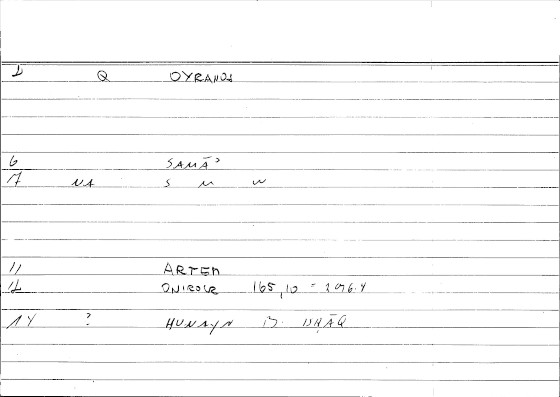 1 Q OYRANOS
6 SAMĀʾ
7 NA S M W
11 ARTEM
12 ONIROCR 165,10 = 206.4
14 ? HUNAYN B. ISḤĀQ